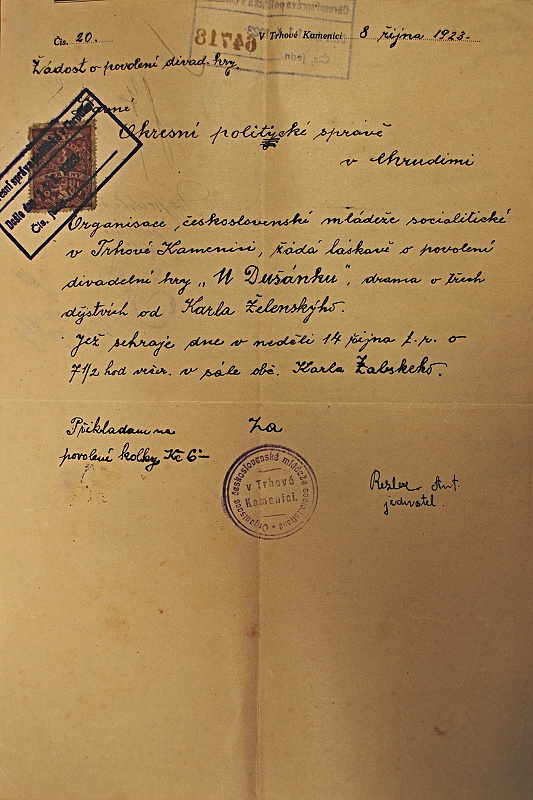 Okresní správa politická v
64718
Čís. jedn.
Čís. 20. V Trhové Kamenici 8 října 1923.
Žádost o povolení divad. hry.
Slavné
Okresní politycké správě
v Chrudimi
Organisace československé mládeže socialitické
v Trhové Kamenici, žádá láskavě o povolení
divadelní hry „U Dušánku", drama o třech
dějstvích od Karla Želenskýho.
Jež sehraje dne v neděli 14 října t. r. o
7 1/2 hod večer. v sále obč. Karla Žabskeho.
Přikladam na Za
povolení kolky Kč 6·-
Organisace československé mládeže socialistické
v Trhové
Kamenici.
Rezler Ant.
jednatel.